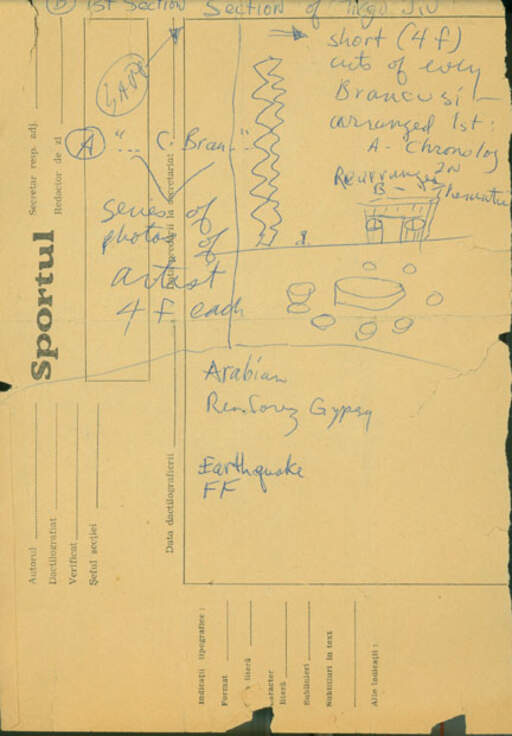 (B) 1st Section Section of Tirgu Jiu
short (4 f)
cuts of every
Brancusi —
arranged 1st:
A - Chronolog
2n
B - Thematic
(A) "... C. Bran..."
series of
photos of
artist
4 F each
Arabian
Gypsy
Earthquake
FF
Sportul
Secretar resp. adj.
Redactor de zi
Data predării la secretariat
Autorul
Dactilografiat
Verificat
Șeful secției
Data dactilografierii
Indicații tipografice :
Format
literă
aracter
literă
Sublinieri
Subtitluri în text
Alte indicații :